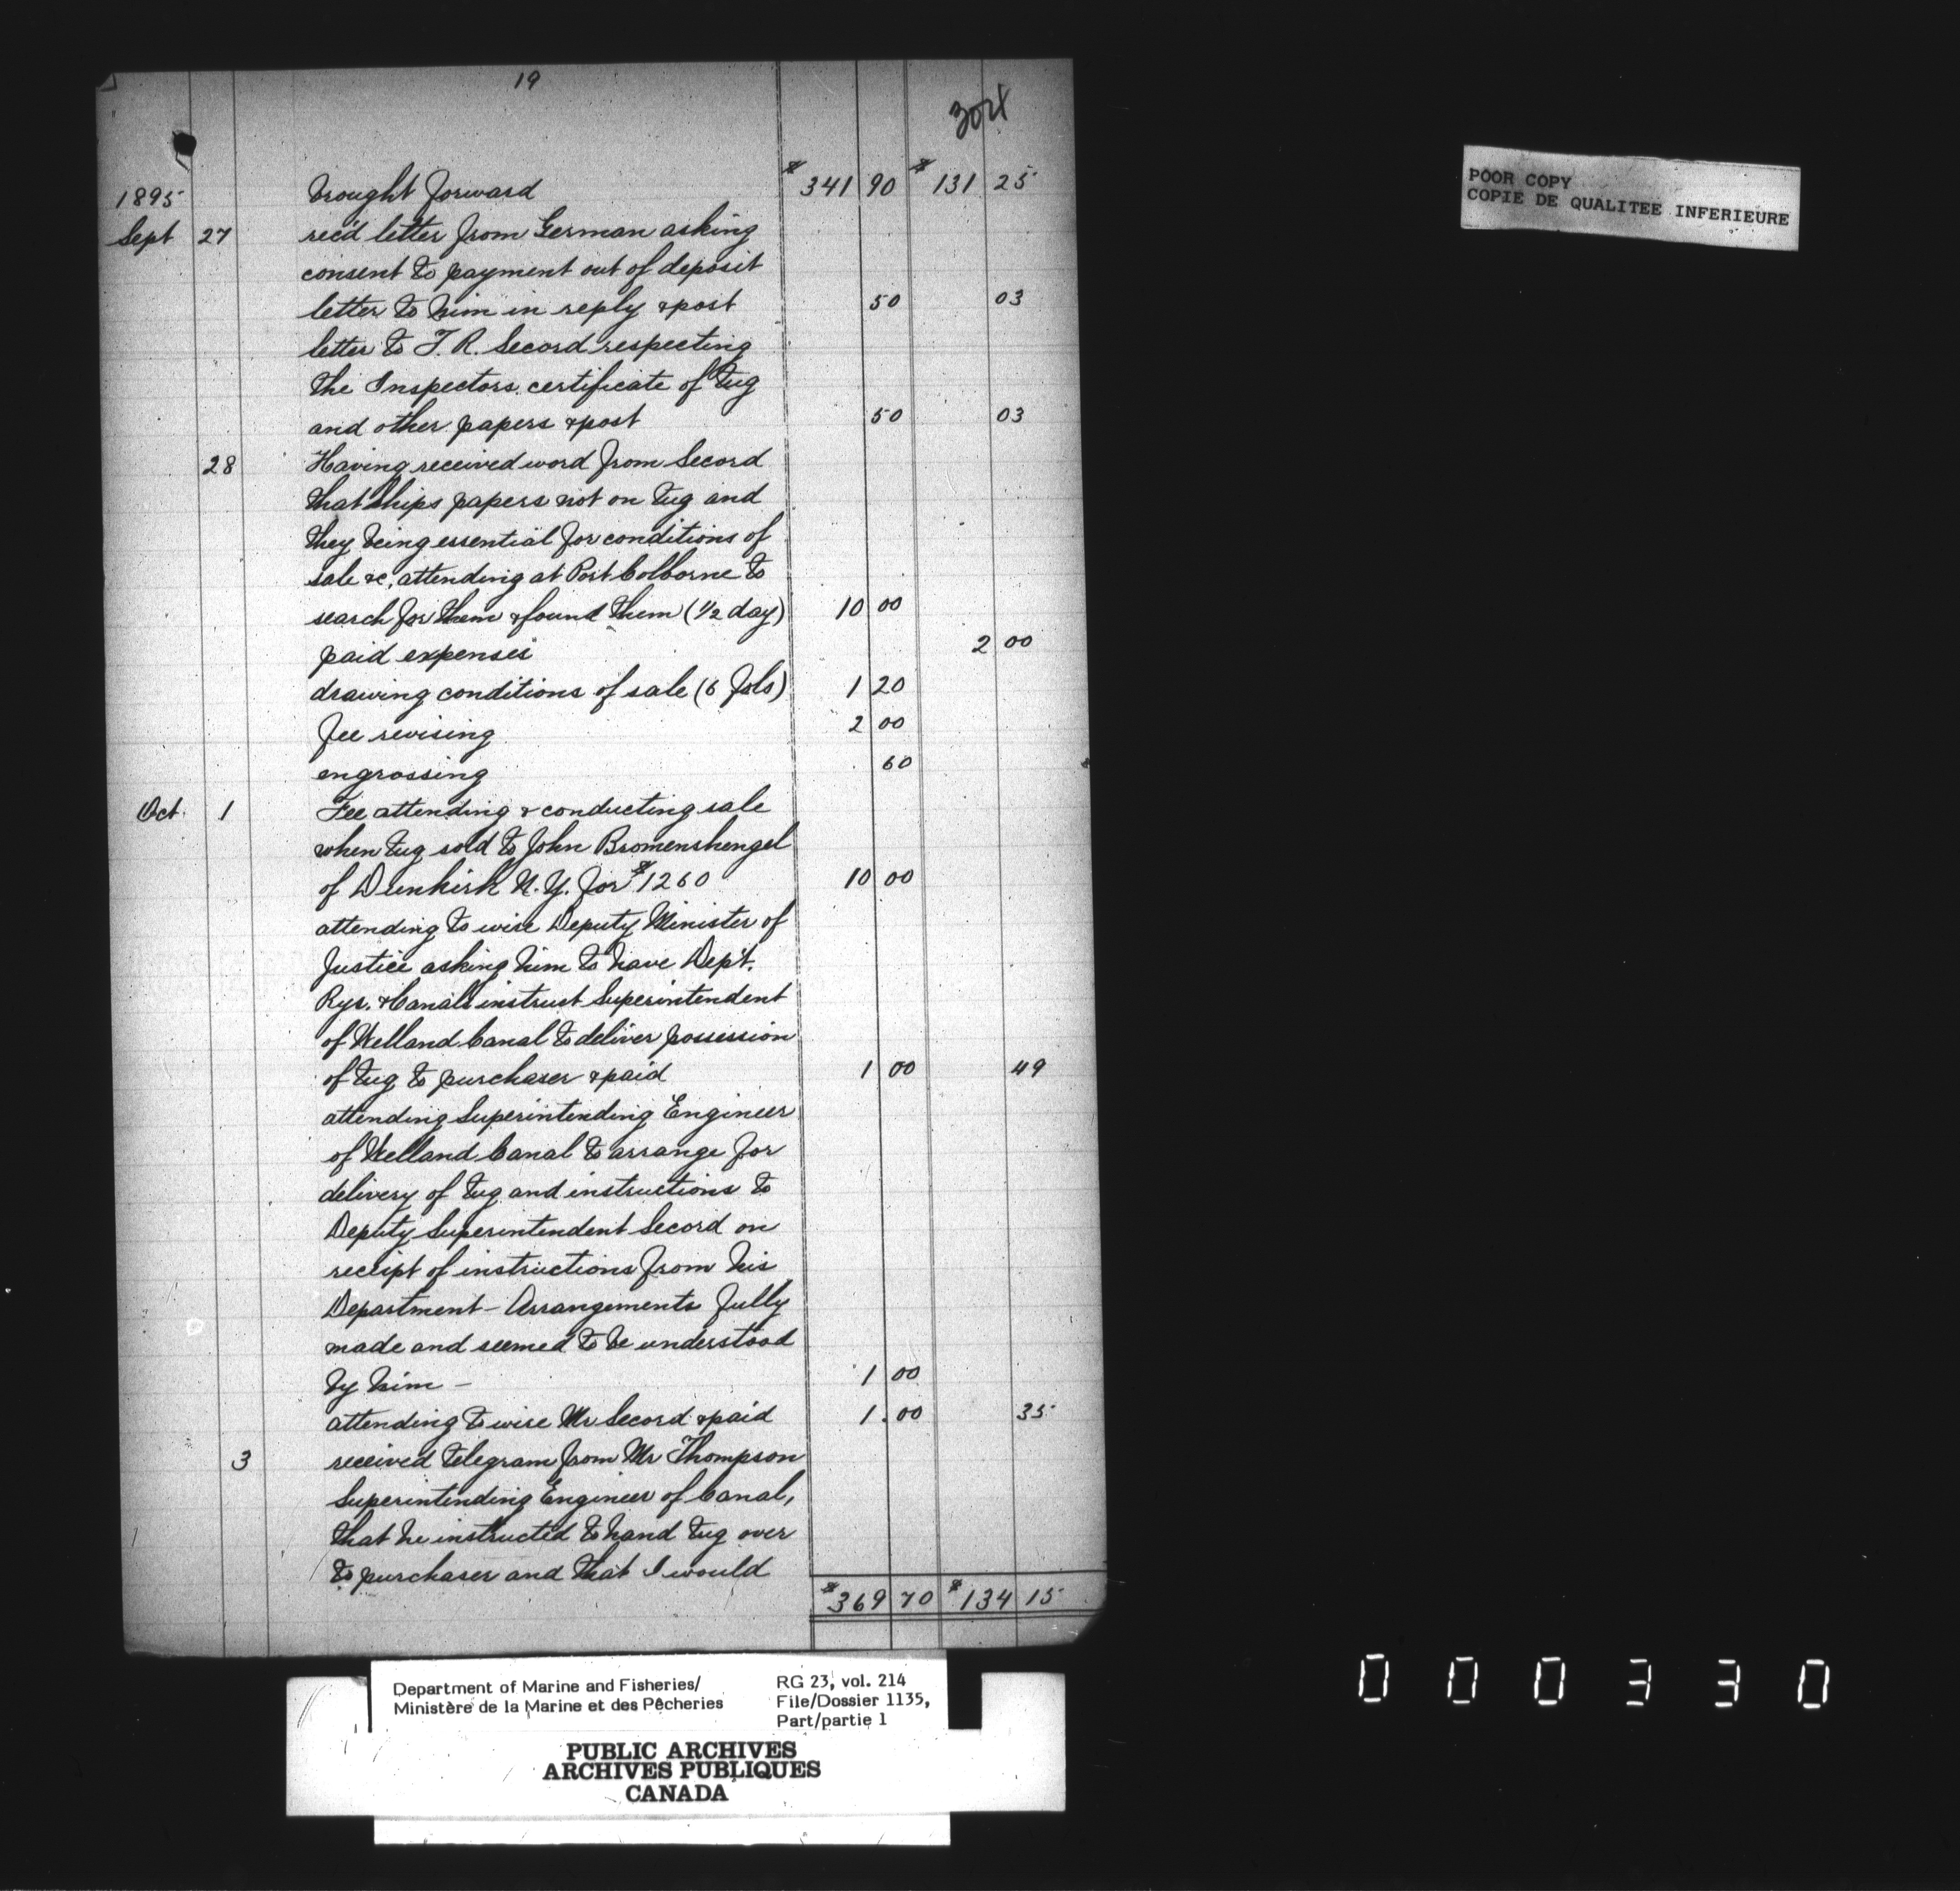 19
304
brought forward $341 90 $131 25
1895
Sept 27 rec'd letter from German asking
consent to payment out of deposit
letter to him in reply & post 50 03
letter to T. R. Secord respecting
the Inspectors certificate of tug
and other papers & post 50 03
28 Having received word from Secord
that ships papers not on tug and
they being essential for conditions of
sale &c, attending at Port Colborne to
search for them & found them (1/2 day) 10 00
paid expenses 2 00
drawing conditions of sale (6 fols) 1 20
fee revising 2 00
engrossing 60
Oct. 1 Fee attending & conducting sale
when tug sold to John Bromenshengel
of Dunkirk N.Y. for $1260 10 00
attending to wire Deputy Minister of
Justice asking him to have Dep't.
Rys. & Canals instruct Superintendent
of Welland Canal to deliver possession
of tug to purchaser & paid 1 00 49
attending Superintending Engineer
of Welland Canal to arrange for
delivery of tug and instructions to
Deputy Superintendent Secord on
receipt of instructions from his
Department - Arrangements fully
made and seemed to be understood
by him - 1 00
attending to wire Mr Secord & paid 1.00 35
3 received telegram from Mr Thompson
Superintending Engineer of Canal,
that he instructed to hand tug over
to purchaser and that I would
$369 70 $134 15
POOR COPY
COPIE DE QUALITEE INFERIEURE
Department of Marine and Fisheries/
Ministère de la Marine et des Pêcheries
RG 23, vol. 214
File/Dossier 1135,
Part/partie 1
PUBLIC ARCHIVES
ARCHIVES PUBLIQUES
CANADA
000330